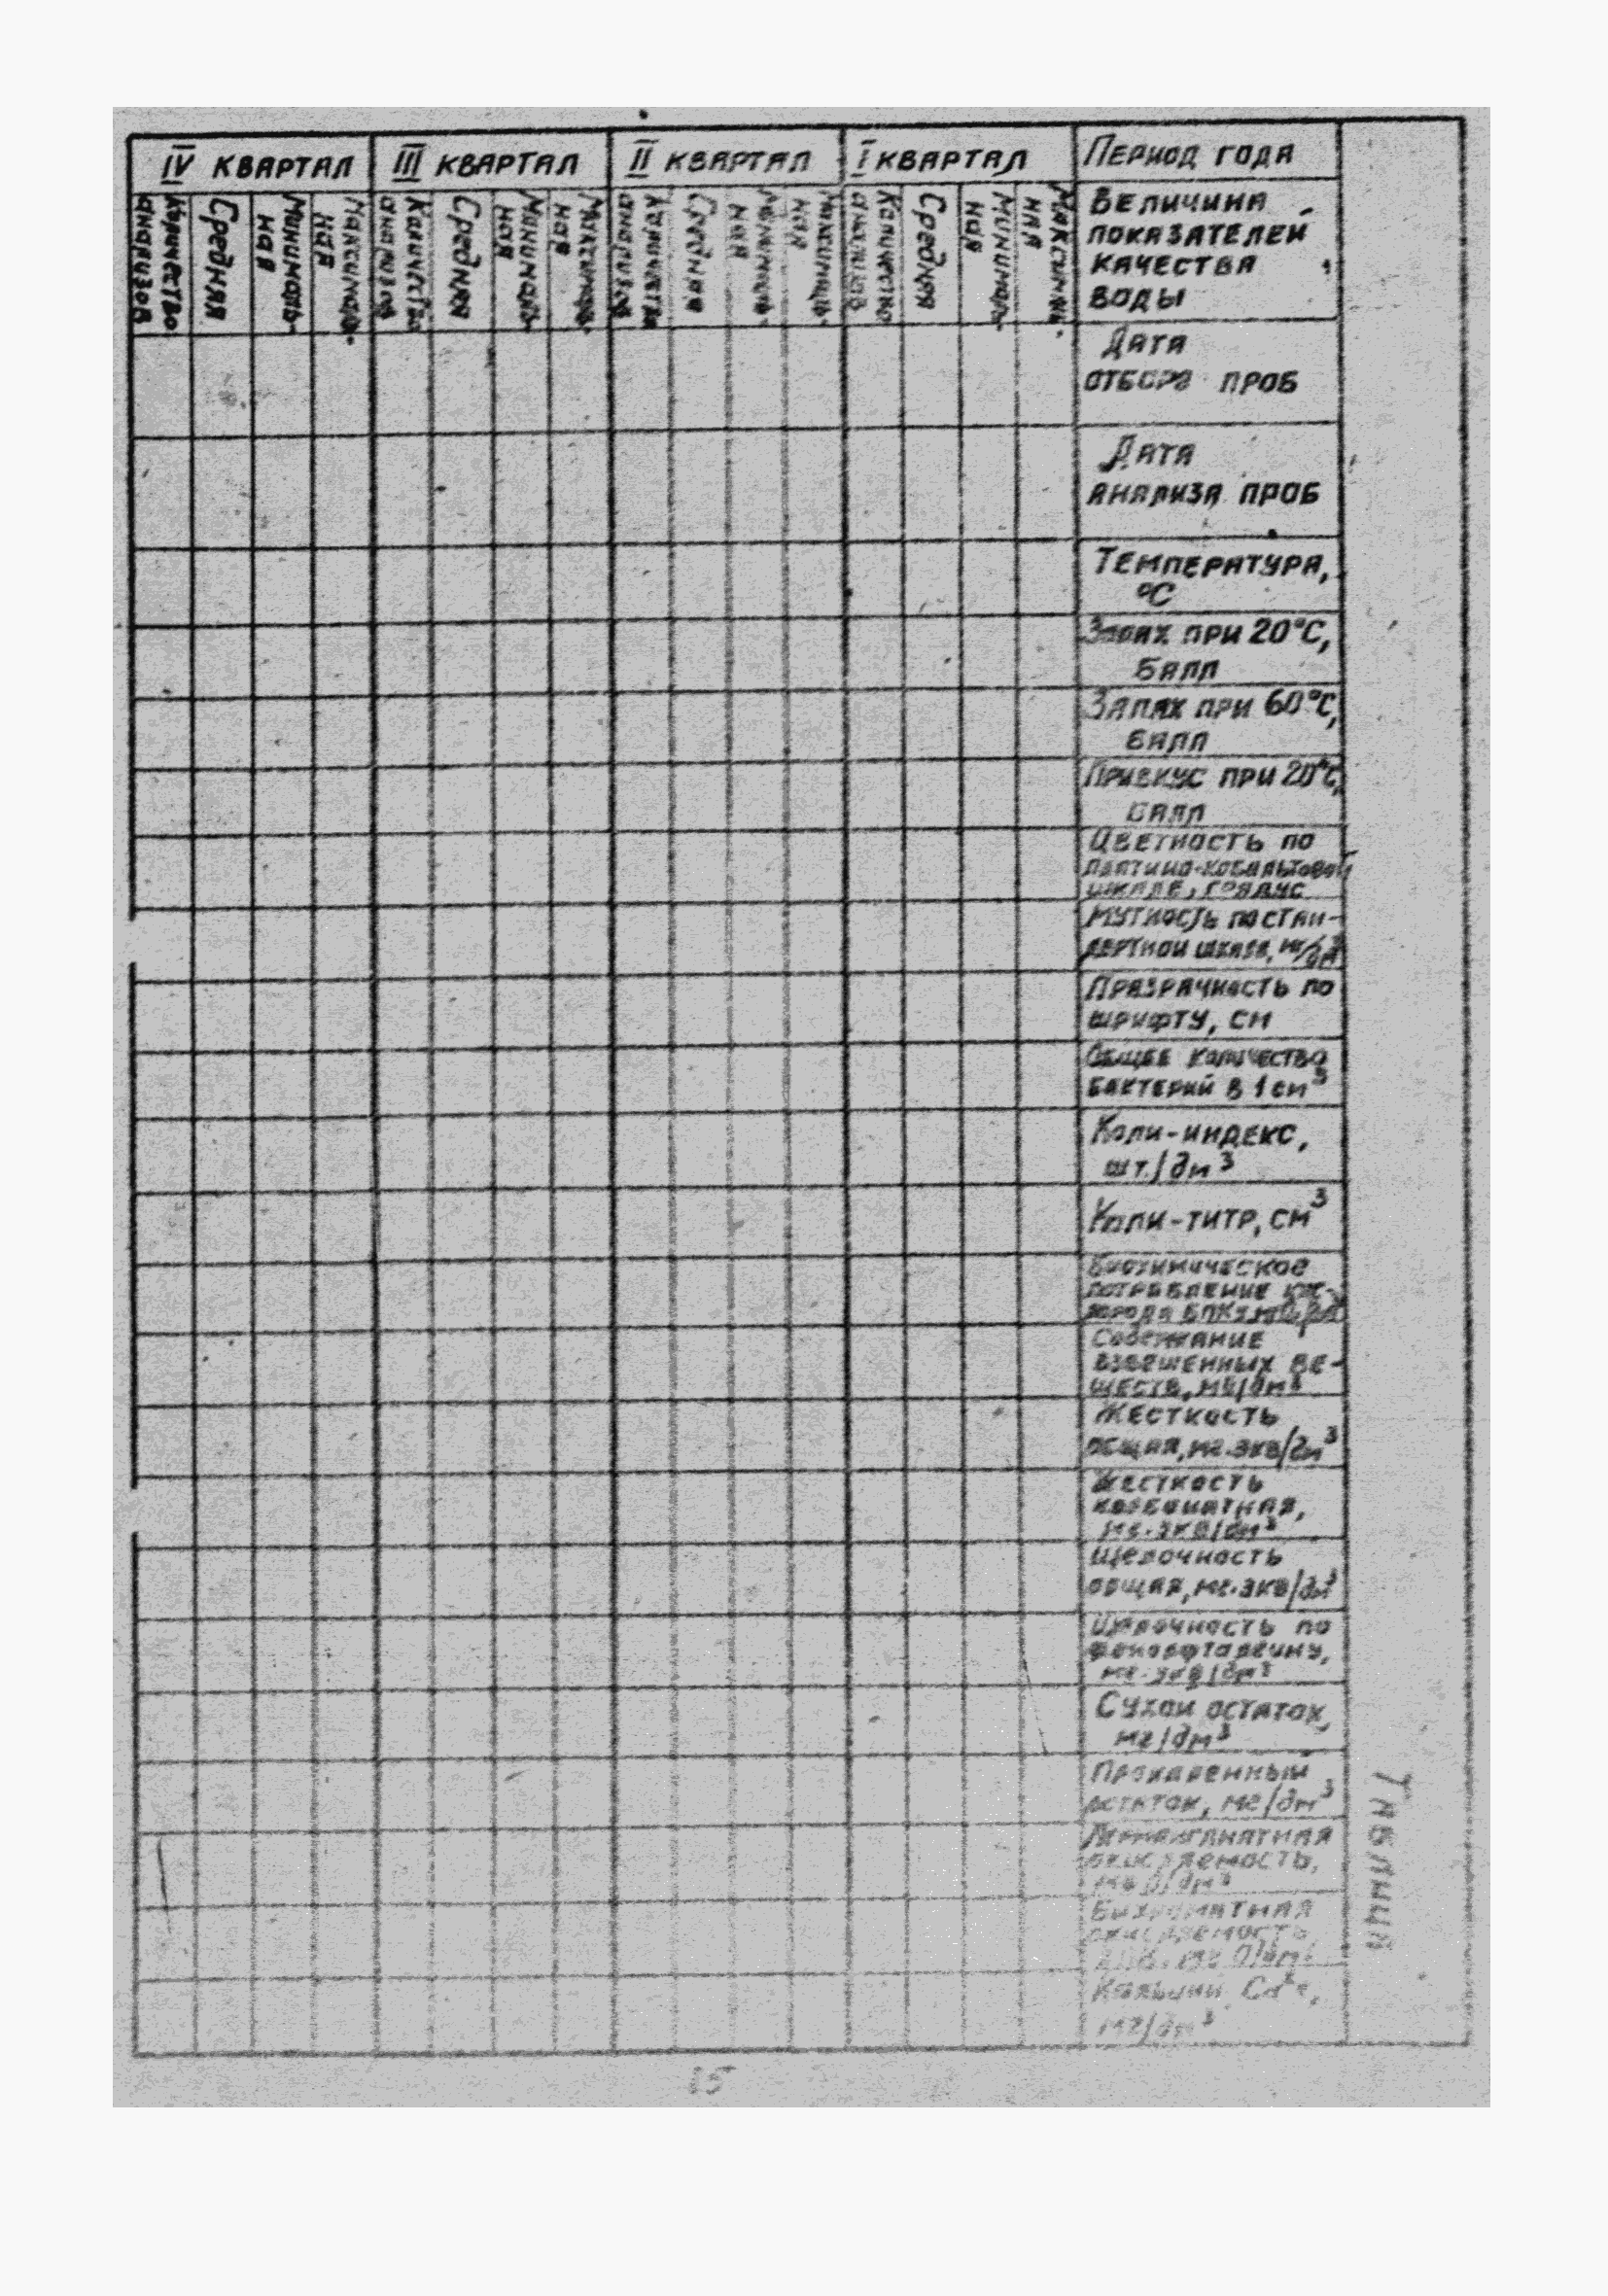 IV КВАРТАЛ III КВАРТАЛ II КВАРТАЛ I КВАРТАЛ ПЕРИОД ГОДА
Количество
анализов
Средняя
Минималь-
ная
Максималь-
ная
Количество
анализов
Средняя
Минималь-
ная
Максималь-
ная
Количество
анализов
Средняя
Минималь-
ная
Максималь-
ная
Количество
анализов
Средняя
Минималь-
ная
Максималь-
ная
ВЕЛИЧИНА
ПОКАЗАТЕЛЕЙ
КАЧЕСТВА
ВОДЫ
ДАТА
ОТБОРА ПРОБ
ДАТА
АНАЛИЗА ПРОБ
ТЕМПЕРАТУРА,
°С
ЗАПАХ ПРИ 20°С,
БАЛЛ
ЗАПАХ ПРИ 60°С,
БАЛЛ
ПРИВКУС ПРИ 20°С,
БАЛЛ
ЦВЕТНОСТЬ ПО
ПЛАТИНО-КОБАЛЬТОВОЙ
ШКАЛЕ, ГРАДУС
МУТНОСТЬ ПО СТАН-
ДАРТНОЙ ШКАЛЕ, МГ/дм³
ПРОЗРАЧНОСТЬ ПО
ШРИФТУ, СМ
ОБЩЕЕ КОЛИЧЕСТВО
БАКТЕРИЙ В 1 см³
КОЛИ-ИНДЕКС,
шт./дм³
КОЛИ-ТИТР, СМ³
БИОХИМИЧЕСКОЕ
ПОТРЕБЛЕНИЕ КИС-
ЛОРОДА БПК
СОДЕРЖАНИЕ
ВЗВЕШЕННЫХ ВЕ-
ЩЕСТВ, мг/дм³
ЖЕСТКОСТЬ
ОБЩАЯ, мг.экв/дм³
ЖЕСТКОСТЬ
КАРБОНАТНАЯ,
мг.экв/дм³
ЩЕЛОЧНОСТЬ
ОБЩАЯ, мг.экв/дм³
ЩЕЛОЧНОСТЬ ПО
ФЕНОЛФТАЛЕИНУ,
мг.экв/дм³
СУХОЙ ОСТАТОК,
мг/дм³
ПРОКАЛЕННЫЙ
ОСТАТОК, мг/дм³
ПЕРМАНГАНАТНАЯ
ОКИСЛЯЕМОСТЬ,
мг О/дм³
БИХРОМАТНАЯ
ОКИСЛЯЕМОСТЬ
мг О/дм³
КАЛЬЦИЙ Ca²⁺,
мг/дм³
ТАБЛИЦА
15